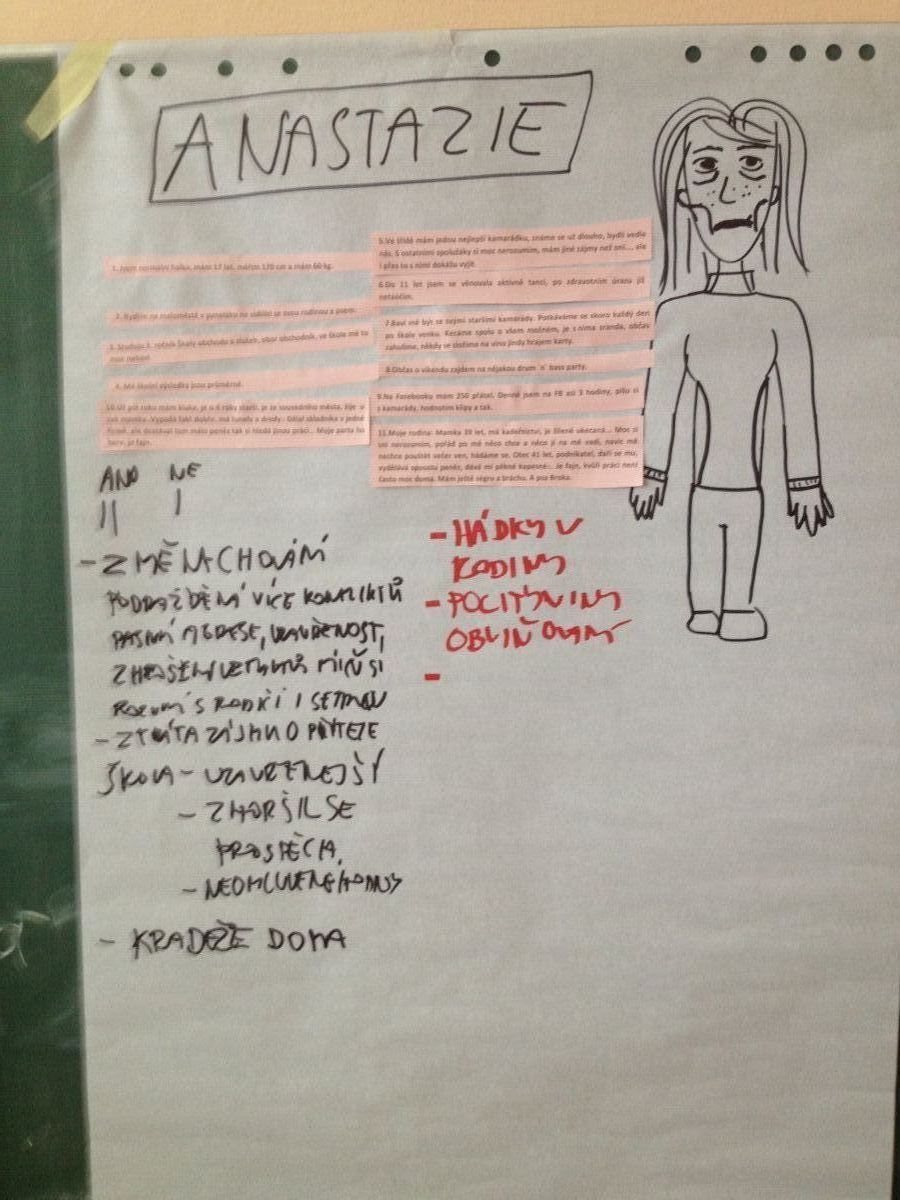 ANASTAZIE
1. Jsem normální holka, mám 17 let, měřím 170 cm a mám 60 kg.
2. Bydlím na maloměstě v paneláku na sídlišti se svou rodinou a psem.
3. Studuju 3. ročník Školy obchodu a služeb, obor obchodník, ve škole mě to
moc nebaví.
4. Mé školní výsledky jsou průměrné.
10. Už půl roku mám kluka, je o 4 roky starší, je ze sousedního města, žije u
své mamky. Vypadá fakt dobře, má tunely a dredy. Dělal skladníka v jedné
firmě, ale dostával tam málo peněz tak si hledá jinou práci.. Moje parta ho
bere, je fajn.
5. Ve třídě mám jednou nejlepší kamarádku, známe se už dlouho, bydlí vedle
nás. S ostatními spolužáky si moc nerozumím, mám jiné zájmy než oni…, ale
i přes to s nimi dokážu vyjít.
6. Do 11 let jsem se věnovala aktivně tanci, po zdravotním úrazu již
netančím.
7. Baví mě být se svými staršími kamarády. Potkáváme se skoro každý den
po škole venku. Kecáme spolu o všem možném, je s nima sranda, občas
zahulíme, někdy se složíme na víno jindy hrajem karty.
8. Občas o víkendu zajdem na nějakou drum ´n´ bass party.
9. Na Facebooku mám 250 přátel. Denně jsem na FB asi 3 hodiny, píšu si
s kamarády, hodnotím klipy a tak.
11. Moje rodina: Mamka 39 let, má kadeřnictví, je šíleně ukecaná… Moc si
sní nerozumím, pořád po mě něco chce a něco jí na mě vadí, navíc mě
nechce pouštět večer ven, hádáme se. Otec 41 let, podnikatel, daří se mu,
vydělává spoustu peněz, dává mi pěkné kapesné.. Je fajn, kvůli práci není
často moc doma. Mám ještě ségru a bráchu. A psa Broka.
ANO NE
|| |
- ZMĚNA CHOVÁNÍ
PODRÁŽDĚNÁ VÍCE KONFLIKTŮ
PASIVNÍ AGRESE, UZAVŘENOST,
ZHORŠENÍ VZTAHŮ MÍŇ SI
ROZUMÍ S RODIČI I SE
- ZTRÁTA ZÁJMU O PŘÍTELE
ŠKOLA - UZAVŘENEJŠÍ
- ZHORŠIL SE
PROSPĚCH,
- NEOMLUVENÉ HODINY
- KRÁDEŽE DOMA
- HÁDKY V
RODINY
- POCITY VINY
OBVIŇOVÁNÍ
-